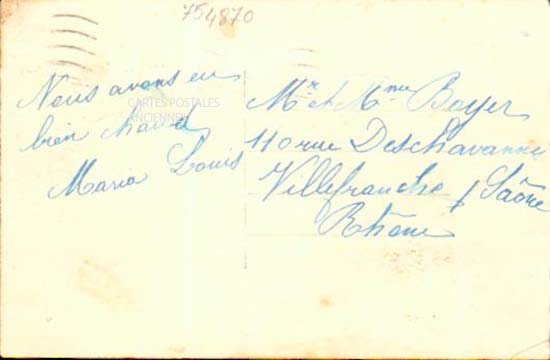 754870
Nous avons eu
bien chaud
Maria Louis
CARTES POSTALES
ANCIENNES
Mr et Mme Boyer
110 rue Deschavanne
Villefranche / Saône
Rhône